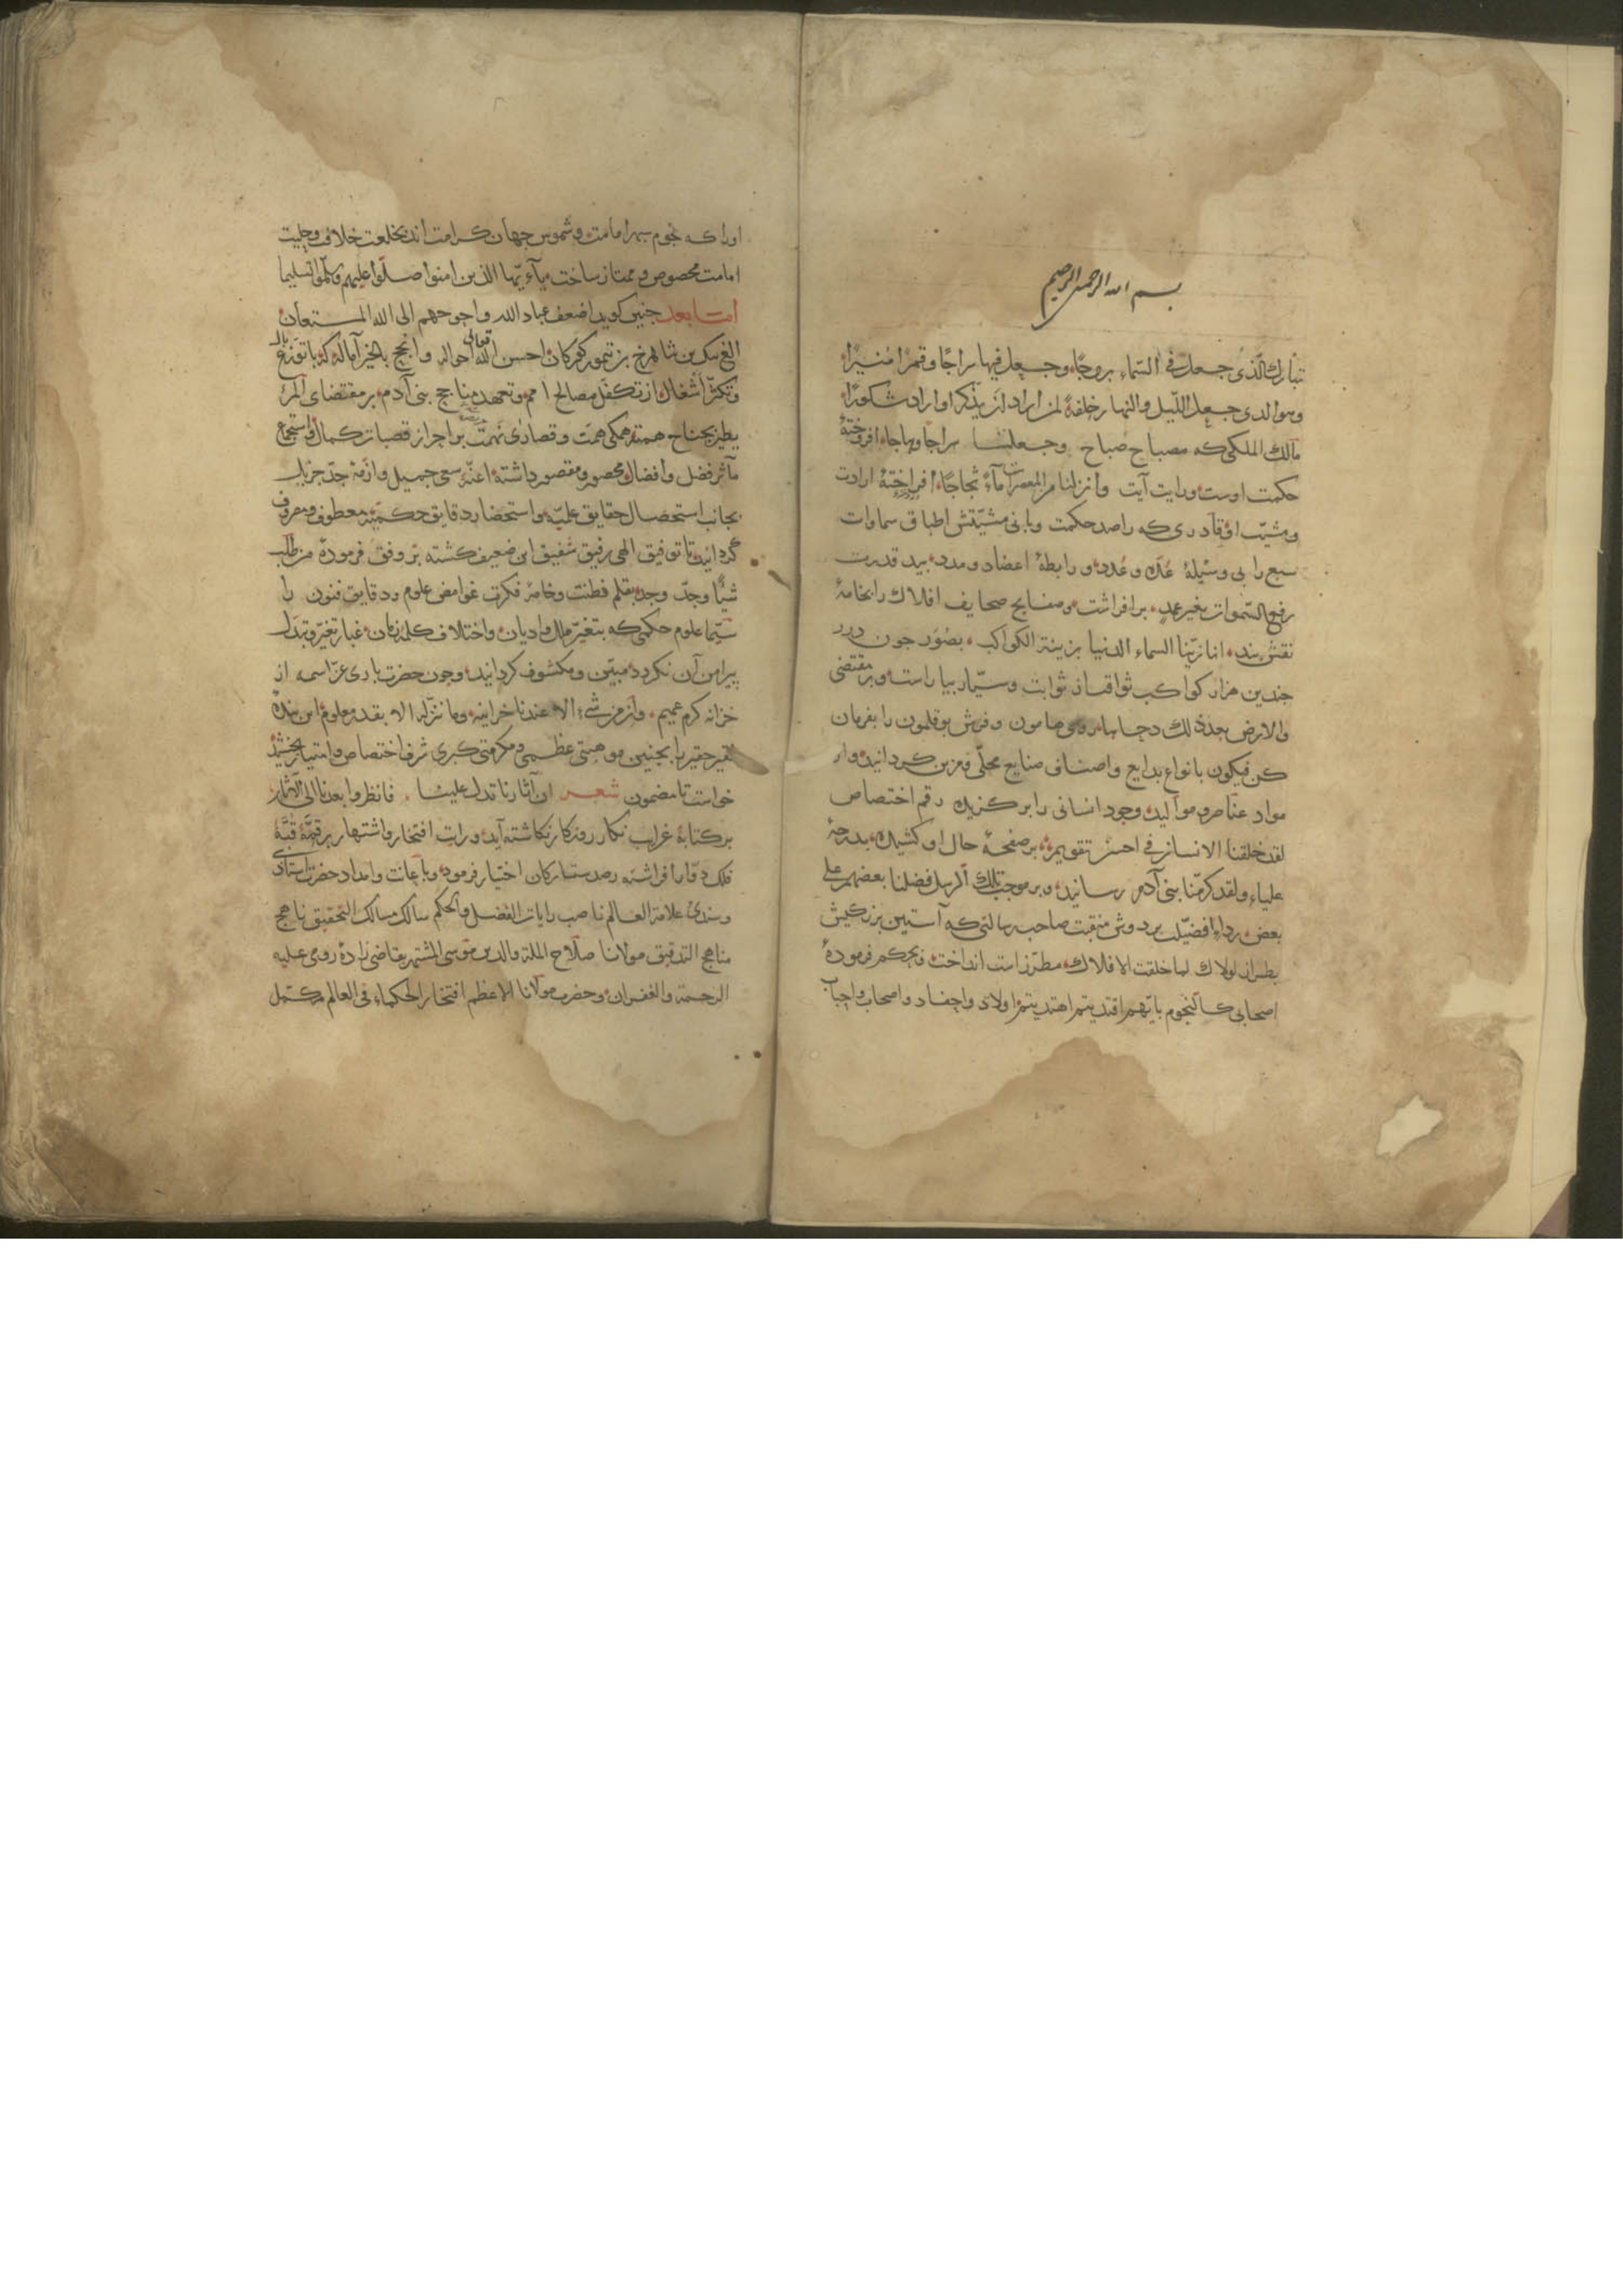 بسم الله الرحمن الرحیم
تبارك الّذی جعل فی السّماء بروجًا وجعل فیها سراجًا وقمرًا مُنیرًا
وهو الذی جعل اللّیل والنهار خلفةً لمن اراد ان یذّكر او اراد شكورًا
مالك الملكی كه مصباح صباح وجعلنا سراجًا وهاجا افروختهٔ
حكمت اوست ورایت آیت وأنزلنا من المعصرات مآءً ثجاجًا افراختهٔ ارادت
ومشیّت او قادری كه راصد حكمت وبانی مشیّتش اطباق سماوات
سبع را بی وسیلهٔ عدد و عُدد و رابطهٔ اعضاد و مدد بید قدرت
رفع السّموات بغیر عمدٍ برافراشت وصفایح صحایف افلاك را بخامهٔ
نقش بند انا زیّنا السماء الدنیا بزینة الكواكب بصُوَر چون درر
چندین هزار كواكب ثواقب از ثوابت وسیّار بیاراست وبر مقتضی
والارض بعد ذلك دحاها روی هامون وفرش بوقلمون را بفرمان
كن فیكون بانواع بدایع واصناف صنایع محلّی ومزین كردانید واز
مواد عناصر وموالید وجود انسانی را بركزید رقم اختصاص
لقد خلقنا الانسان فی احسن تقویم بر صفحهٔ حال او كشید بدرجهٔ
علیاء ولقد كرّمنا بنی آدم رسانید وبر موجب تلك الرسل فضلنا بعضهم علی
بعض رداء افضیّلت بر دوش منقبت صاحب رسالتی كه آستین بزركیش
بطراز لولاك لما خلقت الافلاك مطرّز است انداخت وبحكم فرمودهٔ
اصحابی كالنجوم بایّهم اقتدیتم اهتدیتم اولاد واحفاد واصحاب واحباب
اورا كه نجوم سپهر امامت وشموس جهان كرامت اند بخلعت خلافت وحلیت
امامت مخصوص وممتاز ساخت یآ ءیّها الذین امنوا صلّوا علیهم وسلّموا تسلیما
امّا بعد چنین كوید اضعف عباد الله واحوجهم الی الله المستعان
الغ بیك بن شاهرخ بن تیمور كوركان احسن الله تعالی احواله وانجح بالخیر آماله كه با توزّع بال
وتكثّر أشغال از تكفّل مصالح امم وتعهد مناجح بنی آدم بر مقتضای المرء
یطیر بجناح همته همكی همّت وقصارای نهمت بر احراز قصبات كمال واستجماع
مآثر فضل وافضال محصور ومقصور داشته اعنّه سعی جمیل وازمّه جدّ جزیل
بجانب استحصال حقایق علمیّه واستحضار دقایق حكمیّه معطوف ومصروف
كردانید تا توفیق الهی رفیق شفیق این ضعیف كشته بر وفق فرمودهٔ من طلب
شیًا وجدّ وجد بقلم فطنت وخامهٔ فكرت غوامض علوم ودقایق فنون را
سیّما علوم حكمی كه بتغیّر ملل وادیان واختلاف كله زمان غبار تغیّر وتبدّل
پیرامن آن نكردد مبیّن ومكشوف كردانید وچون حضرت باری عزّ اسمه از
خزانه كرم عمیم وان من شیء الا عندنا خزاینه وما ننزّله الا بقدر معلوم این بندهٔ
فقیر حقیر را بچنین موهبتی عظمی ومكرمتی كبری شرف اختصاص وامتیاز بخشید
خواست تا مضمون شعر ان آثارنا تدل علینا فانظروا بعدنا الی الآثار
بر كتابهٔ غرایب نكار روزكار نكاشته آید ورایت افتخار واشتهار بر قمّهٔ قبّهٔ
فلك دوّار افراشته رصد ستاركان اختیار فرمود وباعانت وامداد حضرت استادی
وسندی علامة العالم ناصب رایات الفضل والحكم سالك مسالك التحقیق ناهج
مناهج التدقیق مولانا صلاح الملة والدین موسی المشتهر بقاضی زادهٔ رومی علیه
الرحمة والغفران وحضرت مولانا الاعظم افتخار الحكماء فی العالم مكمّل